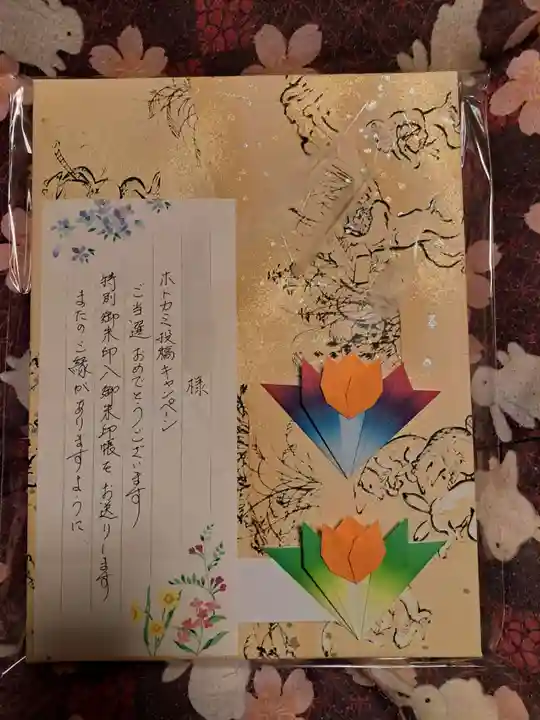 様
ホトカミ投稿キャンペーン
ご当選 おめでとうございます
特別御朱印入御朱印帳をお送りします
またのご縁がありますように